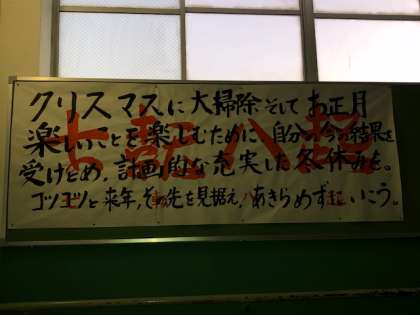 クリスマスに大掃除そしてお正月
楽しいことを楽しむために、自分の今の結果を
受けとめ、計画的な充実した冬休みを。
コツコツと来年、その先を見据え、あきらめず起いこう。
七転八起